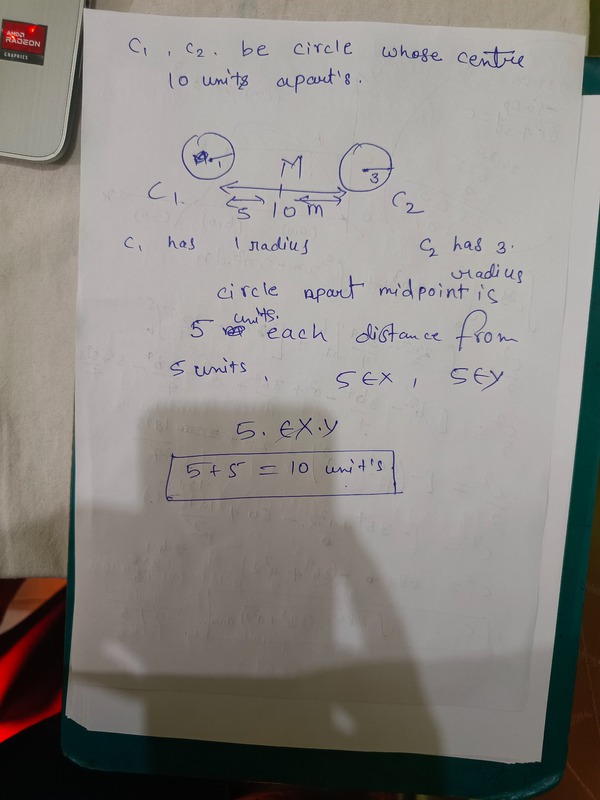 AMD
RADEON
GRAPHICS
C1, C2. be circle whose centre
10 units apart's.
1
M
3
C1.
5 10 m
C2
C1 has 1 radius
C2 has 3.
radius
circle apart midpoint is
units.
5 each distance from
5 units, 5 ∈ X, 5 ∈ Y
5. ∈ X.Y
5 + 5 = 10 unit's